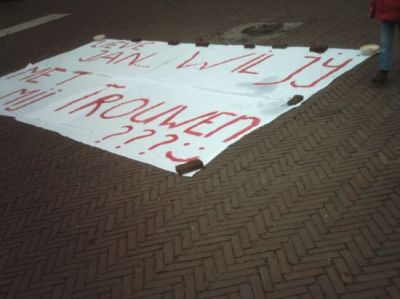 LIEVE
JAN... WIL JÿJ
MET TROUWEN
MIJ ???